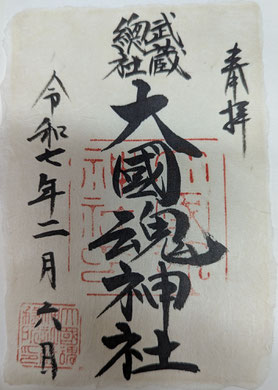 奉拝
武蔵
總社
大國魂神社
令和七年二月六日